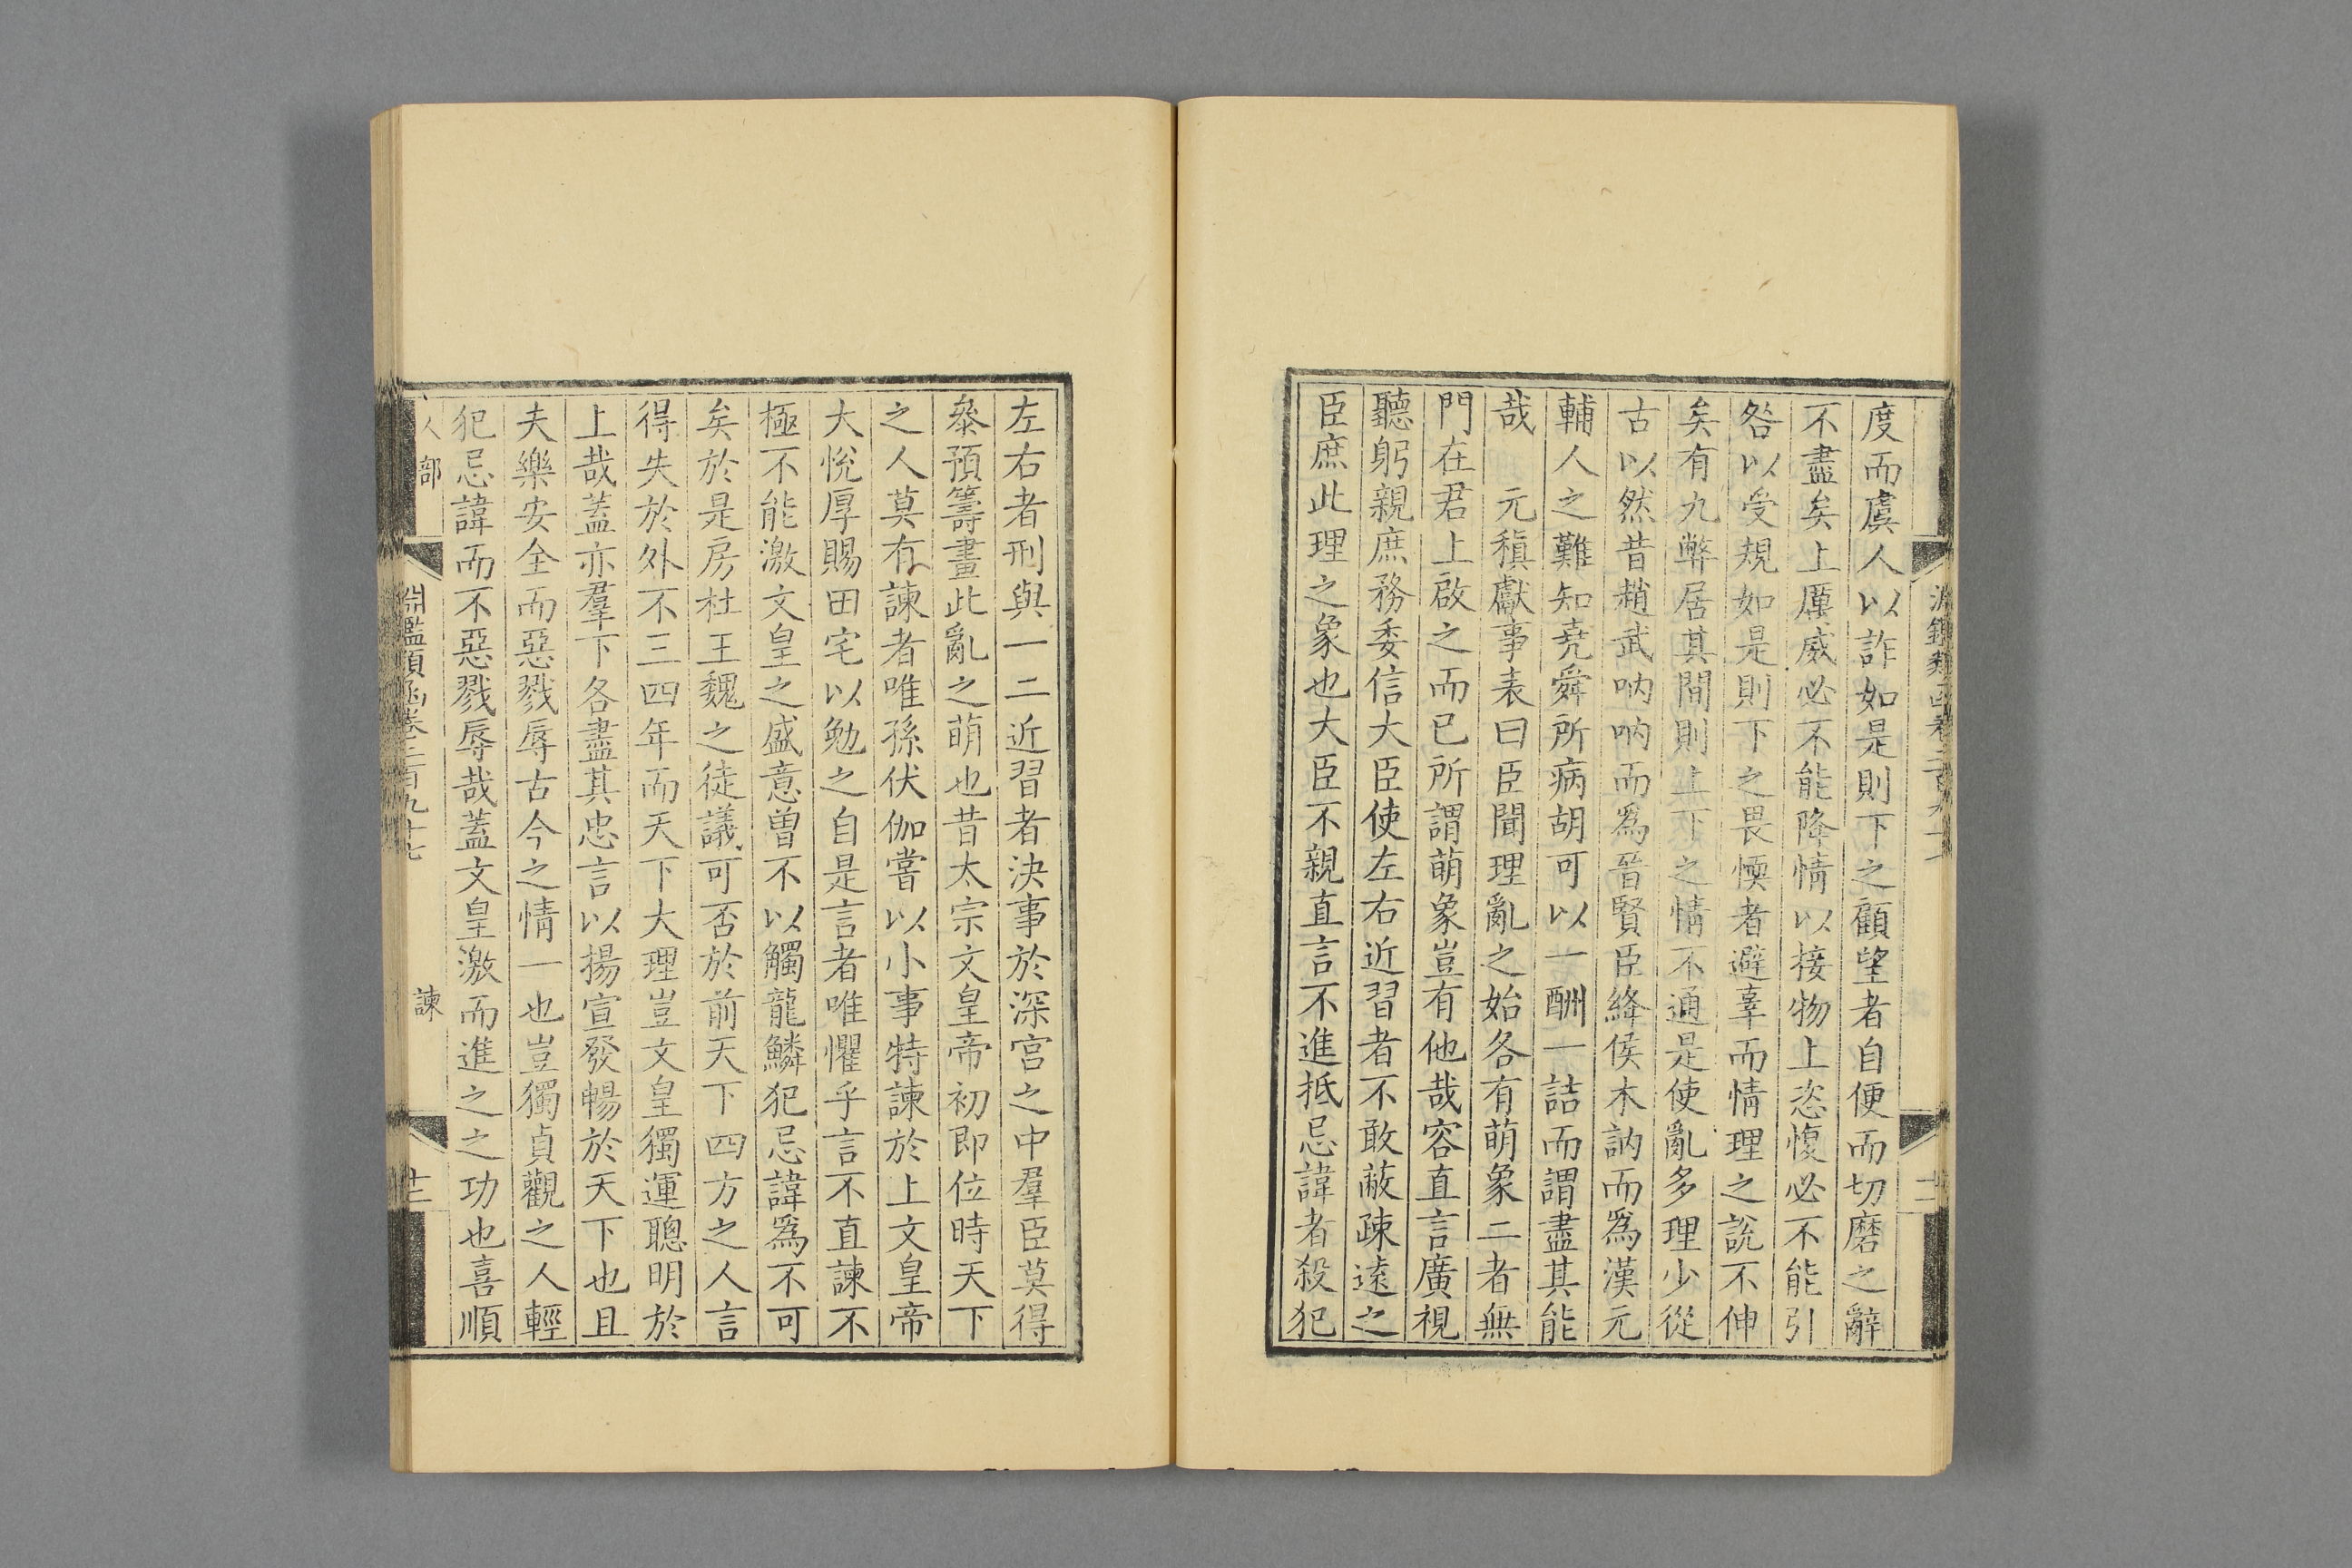 度而虞人以詐如是則下之顧望者自便而切磨之辭
不盡矣上厲威必不能降情以接物上恣愎必不能引
咎以受規如是則下之畏愞者避辜而情理之說不伸
矣有九弊居其間則上下之情不通是使亂多理少從
古以然昔趙武吶吶而爲晉賢臣絳侯木訥而爲漢元
輔人之難知堯舜所病胡可以一酬一詰而謂盡其能
哉　元稹獻事表曰臣聞理亂之始各有萌象二者無
門在君上啟之而已所謂萌象豈有他哉容直言廣視
聽躬親庶務委信大臣使左右近習者不敢蔽疎遠之
臣庶此理之象也大臣不親直言不進抵忌諱者殺犯
左右者刑與一二近習者決事於深宮之中羣臣莫得
叅預籌畫此亂之萌也昔太宗文皇帝初即位時天下
之人莫有諫者唯孫伏伽嘗以小事特諫於上文皇帝
大悅厚賜田宅以勉之自是言者唯懼乎言不直諫不
極不能激文皇之盛意曾不以觸龍鱗犯忌諱爲不可
矣於是房杜王魏之徒議可否於前天下四方之人言
得失於外不三四年而天下大理豈文皇獨運聰明於
上哉蓋亦羣下各盡其忠言以揚宣發暢於天下也且
夫樂安全而惡戮辱古今之情一也豈獨貞觀之人輕
犯忌諱而不惡戮辱哉蓋文皇激而進之之功也喜順
人部　淵鑑類函卷二百九十七　諫　十二